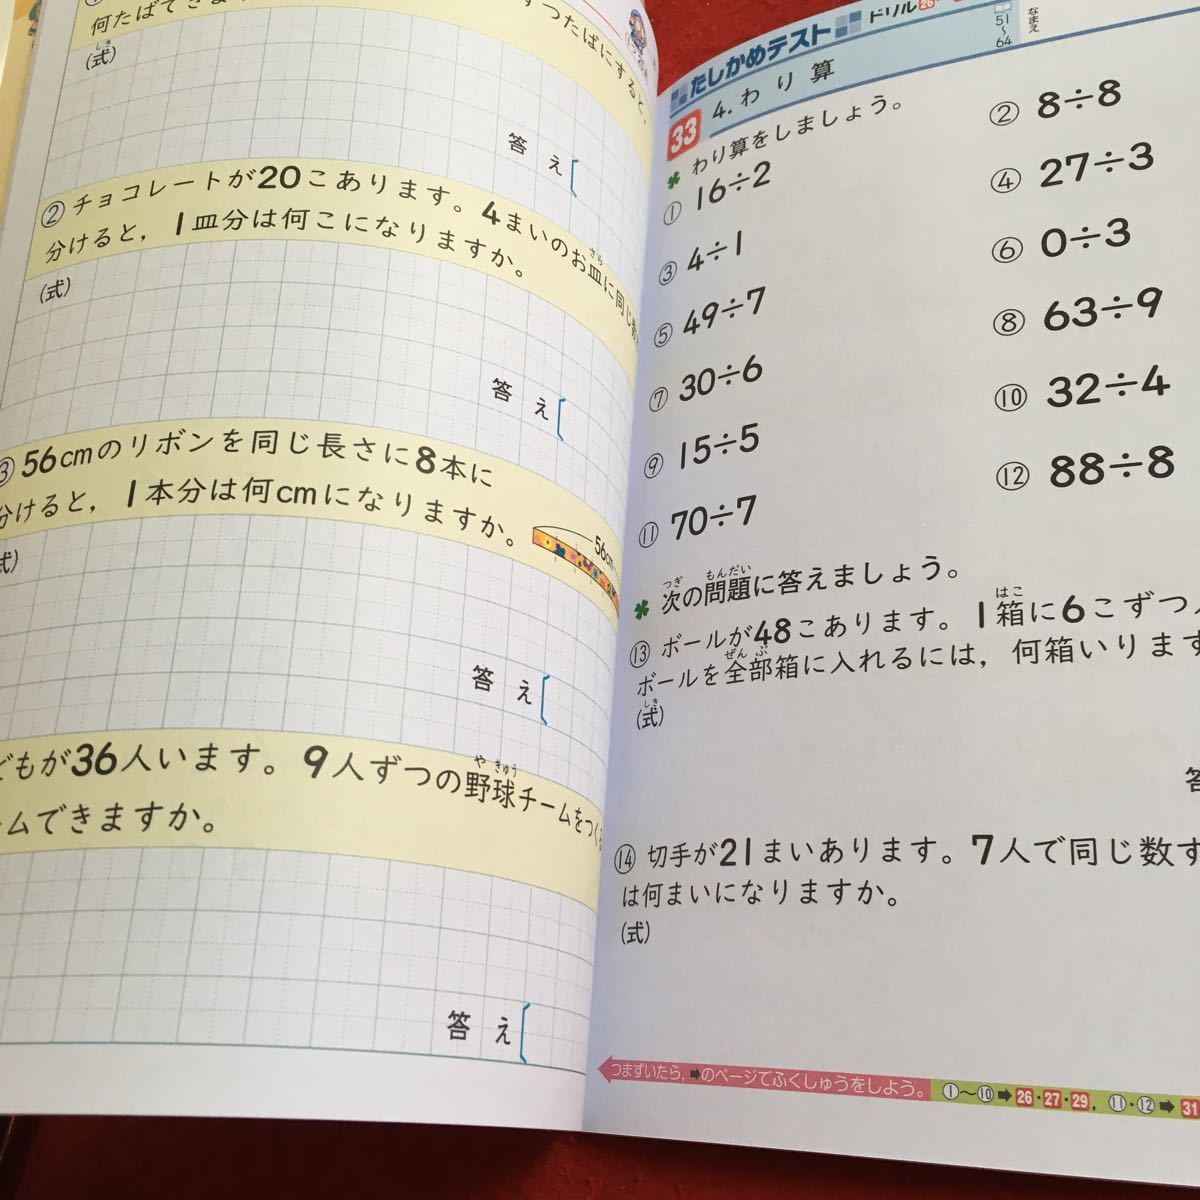 ずつたばにすると,
何たばできま
(式)
しき
答え
② チョコレートが20こあります。4まいのお皿に同じ数
さら
分けると,1皿分は何こになりますか。
(式)
答え
③ 56cmのリボンを同じ長さに8本に
分けると,1本分は何cmになりますか。
56cm
(式)
答え
どもが36人います。9人ずつの野球チームをつくる
や きゅう
ームできますか。
答え
たしかめテスト
ドリル 26
51〜64
なまえ
33 4.わり算
わり算をしましょう。
① 16÷2
② 8÷8
③ 4÷1
④ 27÷3
⑤ 49÷7
⑥ 0÷3
⑦ 30÷6
⑧ 63÷9
⑨ 15÷5
⑩ 32÷4
⑪ 70÷7
⑫ 88÷8
つぎ もんだい
次の問題に答えましょう。
はこ
⑬ ボールが48こあります。1箱に6こずつ
ぜん ぶ
ボールを全部箱に入れるには,何箱いります
しき
(式)
答
⑭ 切手が21まいあります。7人で同じ数ず
は何まいになりますか。
(式)
つまずいたら,➡のページでふくしゅうをしよう。 ①〜⑩➡26・27・29, ⑪・⑫➡31